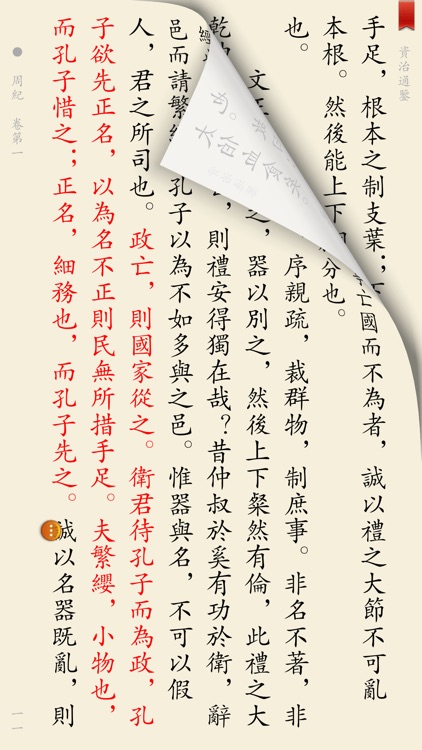 資治通鑒
手足，根本之制支葉；
亡國而不為者，誠以禮之大節不可亂
本根。然後能上下
分也。
也。
序親疏，裁群物，制庶事。非名不著，非
文
之，器以別之，然後上下粲然有倫，此禮之大
則禮安得獨在哉？昔仲叔於奚有功於衛，辭
邑而請繁
孔子以為不如多與之邑。惟器與名，不可以假
人，君之所司也。政亡，則國家從之。衛君待孔子而為政，孔
子欲先正名，以為名不正則民無所措手足。夫繁纓，小物也，
而孔子惜之；正名，細務也，而孔子先之。誠以名器既亂，則
周紀 卷第一
一一